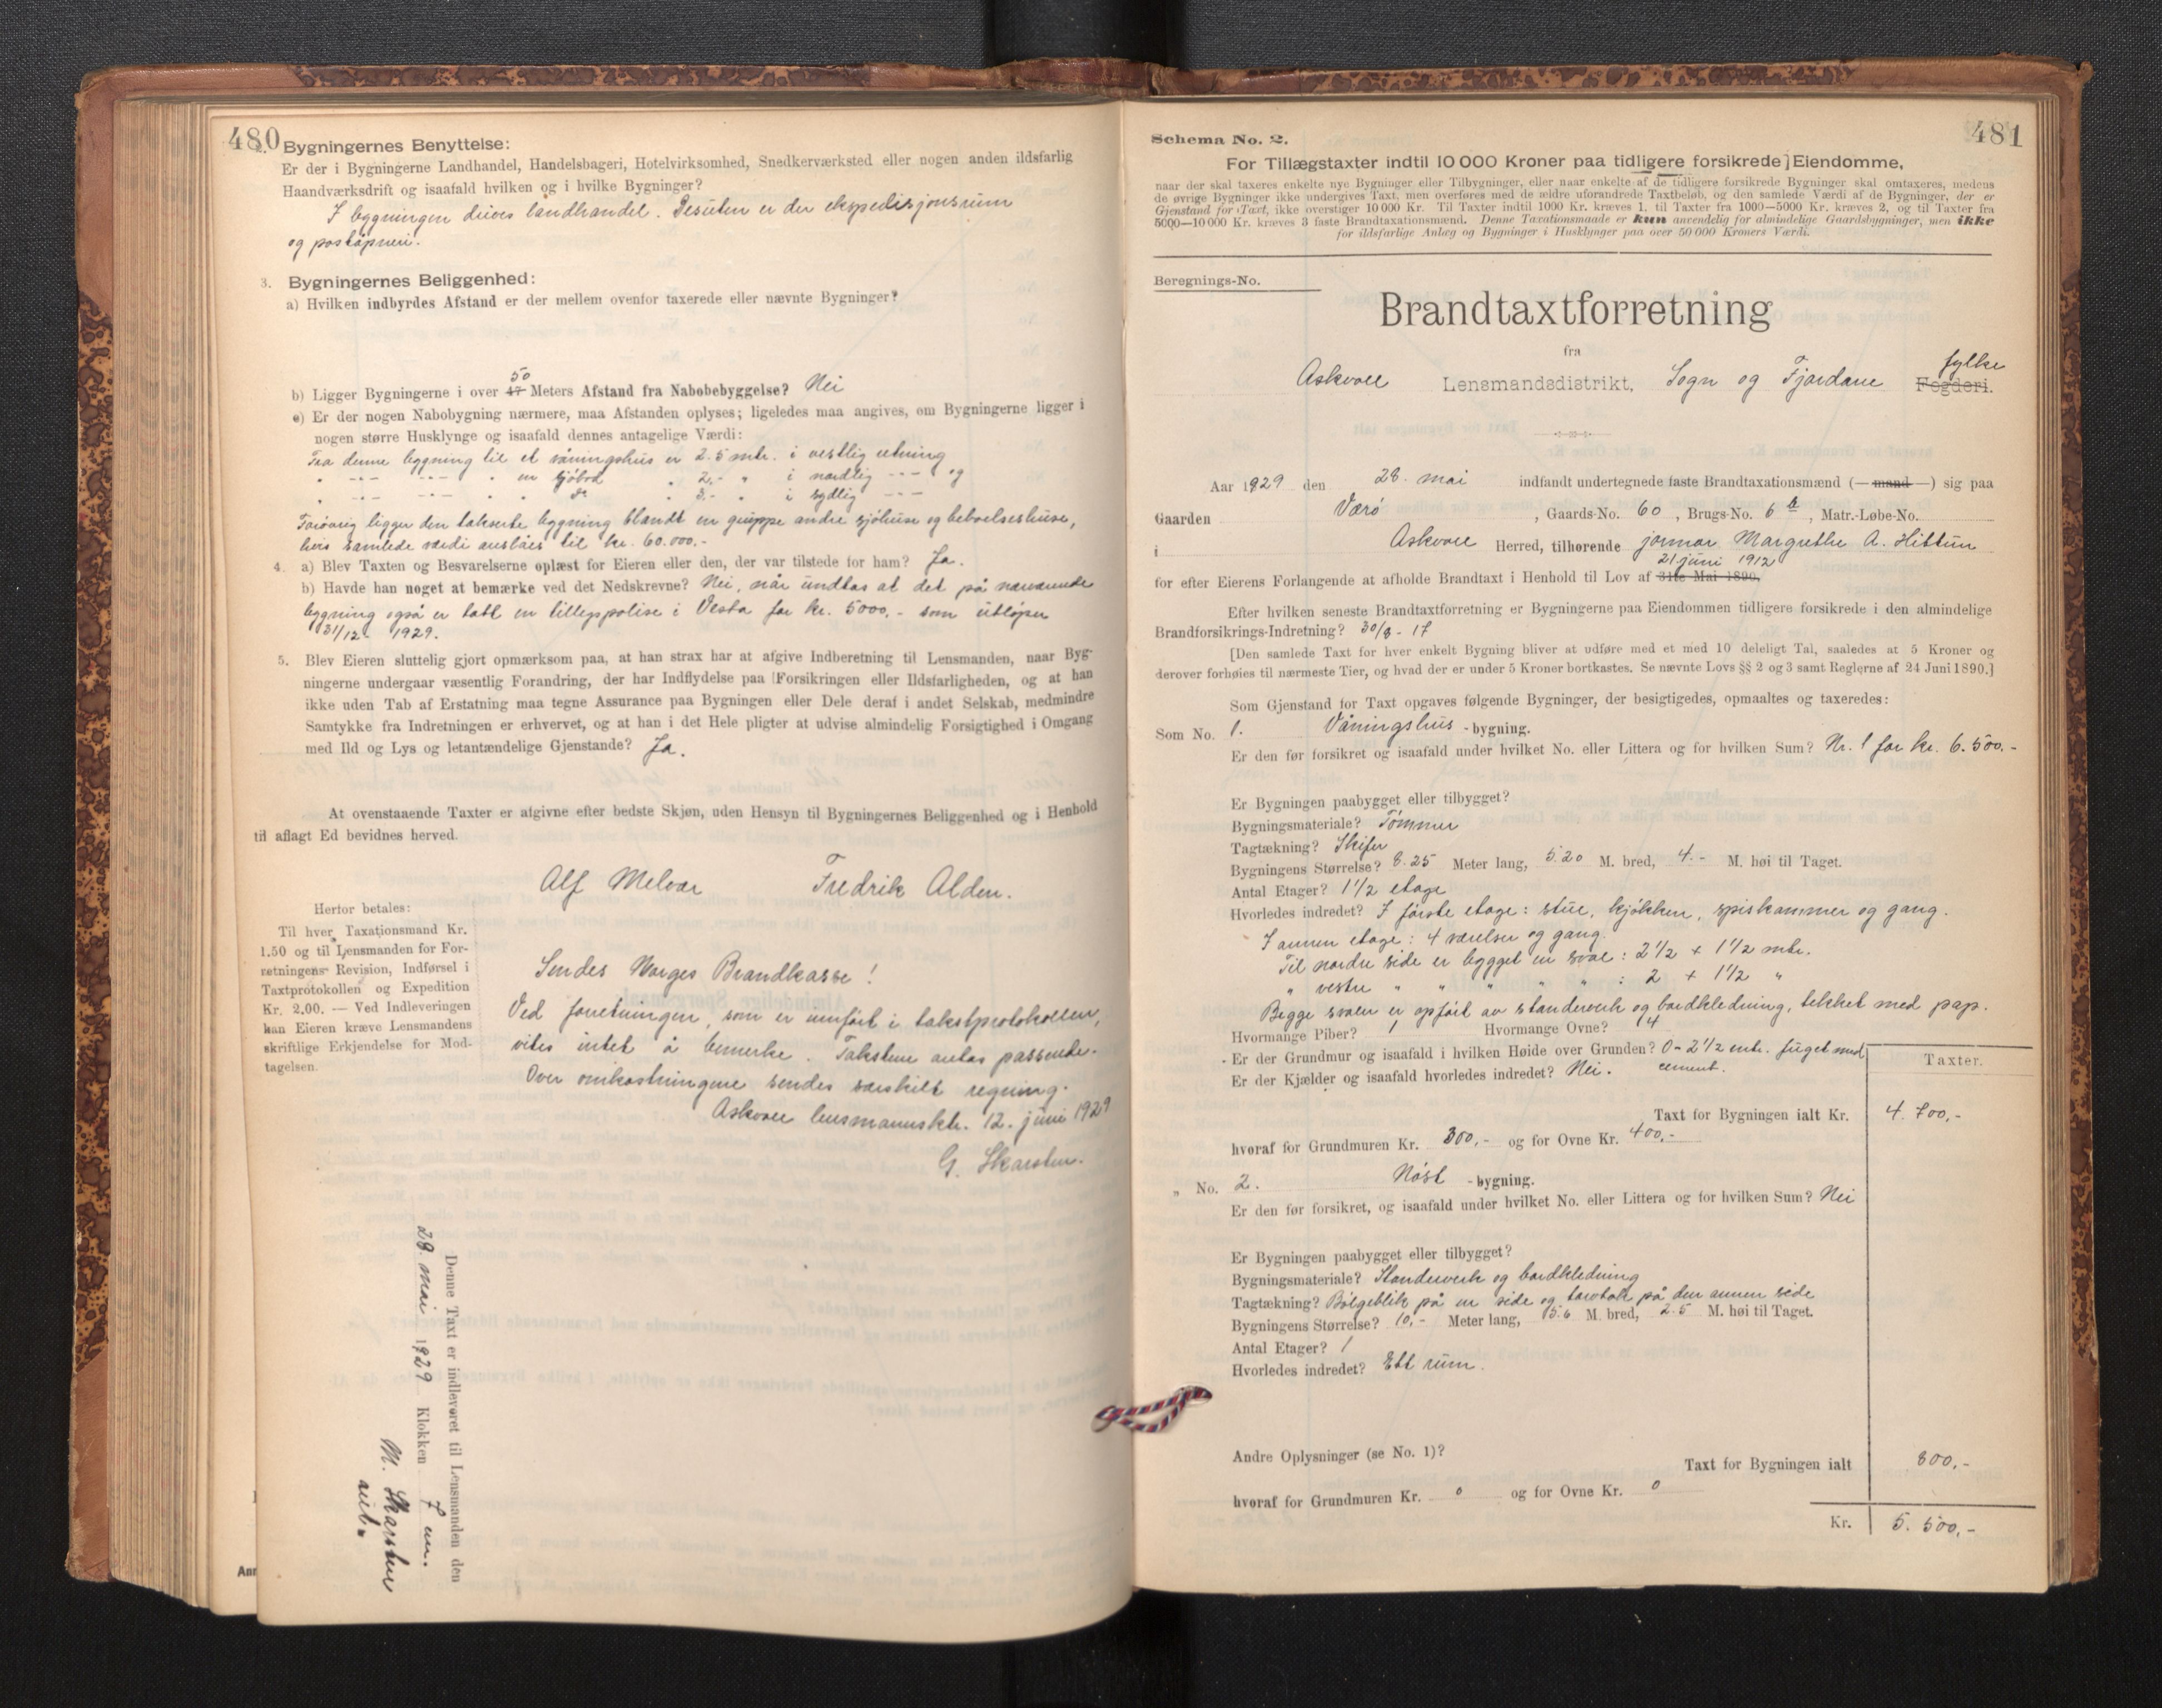 480
2. Bygningernes Benyttelse:
Er der i Bygningerne Landhandel, Handelsbageri, Hotelvirksomhed, Snedkerværksted eller nogen anden ildsfarlig
Haandværksdrift og isaafald hvilken og i hvilke Bygninger?
I bygningen drives landhandel. Desuten er der ekspedisjonsrum
og poståpneri.
3. Bygningernes Beliggenhed:
a) Hvilken indbyrdes Afstand er der mellem ovenfor taxerede eller nævnte Bygninger?
50
b) Ligger Bygningerne i over 47 Meters Afstand fra Nabobebyggelse? Nei
c) Er der nogen Nabobygning nærmere, maa Afstanden oplyses; ligeledes maa angives, om Bygningerne ligger i
nogen større Husklynge og isaafald dennes antagelige Værdi:
Fra denne bygning til et våningshus er 2.5 mtr. i vestlig retning
" --- --- " en sjöbod " 2,- " i nordlig --- og
" --- --- " " do " 3.- " i sydlig ---
Forövrig ligger den takserte bygning blandt en gruppe andre sjöhuse og beboelseshuse,
hvis samlede værdi anslåes til kr. 60.000.-
4. a) Blev Taxten og Besvarelserne oplæst for Eieren eller den, der var tilstede for ham? Ja.
b) Havde han noget at bemærke ved det Nedskrevne? Nei, når undtas at det på nærværende
bygning også er tatt en tilleggspolise i Vesta for kr. 5000,- som utlöper
31/12 - 1929.
5. Blev Eieren sluttelig gjort opmærksom paa, at han strax har at afgive Indberetning til Lensmanden, naar Byg-
ningerne undergaar væsentlig Forandring, der har Indflydelse paa Forsikringen eller Ildsfarligheden, og at han
ikke uden Tab af Erstatning maa tegne Assurance paa Bygningen eller Dele deraf i andet Selskab, medmindre
Samtykke fra Indretningen er erhvervet, og at han i det Hele pligter at udvise almindelig Forsigtighed i Omgang
med Ild og Lys og letantændelige Gjenstande? Ja.
At ovenstaaende Taxter er afgivne efter bedste Skjøn, uden Hensyn til Bygningernes Beliggenhed og i Henhold
til aflagt Ed bevidnes herved.
Alf Melvær Fredrik Alden.
Herfor betales:
Til hver Taxationsmand Kr.
1.50 og til Lensmanden for For-
retningens Revision, Indførsel i
Taxtprotokollen og Expedition
Kr. 2.00. — Ved Indleveringen
kan Eieren kræve Lensmandens
skriftlige Erkjendelse for Mod-
tagelsen.
Sendes Norges Brandkasse!
Ved forretningen, som er innfört i takstprotokollen,
vites intet å bemerke. Takstene antas passende.
Over omkostningene sendes særskilt regning.
Askvoll lensmannsktr. 12. juni 1929
G. Skarsten.
Denne Taxt er indleveret til Lensmanden den
28. mai 1929 Klokken 7 em.
M. Skarsten
481
Schema No. 2.
For Tillægstaxter indtil 10 000 Kroner paa tidligere forsikrede Eiendomme,
naar der skal taxeres enkelte nye Bygninger eller Tilbygninger, eller naar enkelte af de tidligere forsikrede Bygninger skal omtaxeres, medens
de øvrige Bygninger ikke undergives Taxt, men overføres med de ældre uforandrede Taxtbeløb, og den samlede Værdi af de Bygninger, der er
Gjenstand for Taxt, ikke overstiger 10 000 Kr. Til Taxter indtil 1000 Kr. kræves 1, til Taxter fra 1000—5000 Kr. kræves 2, og til Taxter fra
5000—10 000 Kr. kræves 3 faste Brandtaxationsmænd. Denne Taxationsmaade er kun anvendelig for almindelige Gaardsbygninger, men ikke
for ildsfarlige Anlæg og Bygninger i Husklynger paa over 50 000 Kroners Værdi.
Beregnings-No.
Brandtaxtforretning
fra
fylke
Askvoll Lensmandsdistrikt, Sogn og Fjordane Fogderi.
Aar 1929 den 28. mai indfandt undertegnede faste Brandtaxationsmænd (— mand —) sig paa
Gaarden Værö, Gaards-No. 60, Brugs-No. 6 b, Matr.-Løbe-No.
i Askvoll Herred, tilhørende jormor Margrethe A. Hittun
21. juni 1912
for efter Eierens Forlangende at afholde Brandtaxt i Henhold til Lov af 31te Mai 1890.
Efter hvilken seneste Brandtaxtforretning er Bygningerne paa Eiendommen tidligere forsikrede i den almindelige
Brandforsikrings-Indretning? 30/8 - 17
[Den samlede Taxt for hver enkelt Bygning bliver at udføre med et med 10 deleligt Tal, saaledes at 5 Kroner og
derover forhøies til nærmeste Tier, og hvad der er under 5 Kroner bortkastes. Se nævnte Lovs §§ 2 og 3 samt Reglerne af 24 Juni 1890.]
Som Gjenstand for Taxt opgaves følgende Bygninger, der besigtigedes, opmaaltes og taxeredes:
Som No. 1. Våningshus -bygning.
Er den før forsikret og isaafald under hvilket No. eller Littera og for hvilken Sum? Nr. 1 for kr. 6.500,-
Er Bygningen paabygget eller tilbygget?
Bygningsmateriale? Tömmer
Tagtækning? Skifer
Bygningens Størrelse? 8.25 Meter lang, 5.20 M. bred, 4.- M. høi til Taget.
Antal Etager? 1 1/2 etage
Hvorledes indredet? I förste etage: stue, kjökken, spiskammer og gang.
I annen etage: 4 værelser og gang.
Til nordre side er bygget en sval: 2 1/2 x 1 1/2 mtr.
" vestre " " " " " : 2 x 1 1/2 "
Begge svaler er opfört av standerverk og bordkledning, tekket med pap.
Hvormange Piber? 1 Hvormange Ovne? 4
Er der Grundmur og isaafald i hvilken Høide over Grunden? 0 - 2 1/2 mtr. fuget med
cement.
Er der Kjælder og isaafald hvorledes indredet? Nei.
Taxter.
Taxt for Bygningen ialt Kr. 4.700,-
hvoraf for Grundmuren Kr. 300,- og for Ovne Kr. 400,-
„ No. 2. Nöst -bygning.
Er den før forsikret, og isaafald under hvilket No. eller Littera og for hvilken Sum? Nei
Er Bygningen paabygget eller tilbygget?
Bygningsmateriale? Standerverk og bordkledning
Tagtækning? Bölgeblik på en side og torvtak på den annen side
Bygningens Størrelse? 10,- Meter lang, 5.6 M bred, 2.5 M. høi til Taget.
Antal Etager? 1
Hvorledes indredet? Ett rum.
Andre Oplysninger (se No. 1)?
Taxt for Bygningen ialt 800,-
hvoraf for Grundmuren Kr. 0 og for Ovne Kr. 0
Kr. 5.500,-